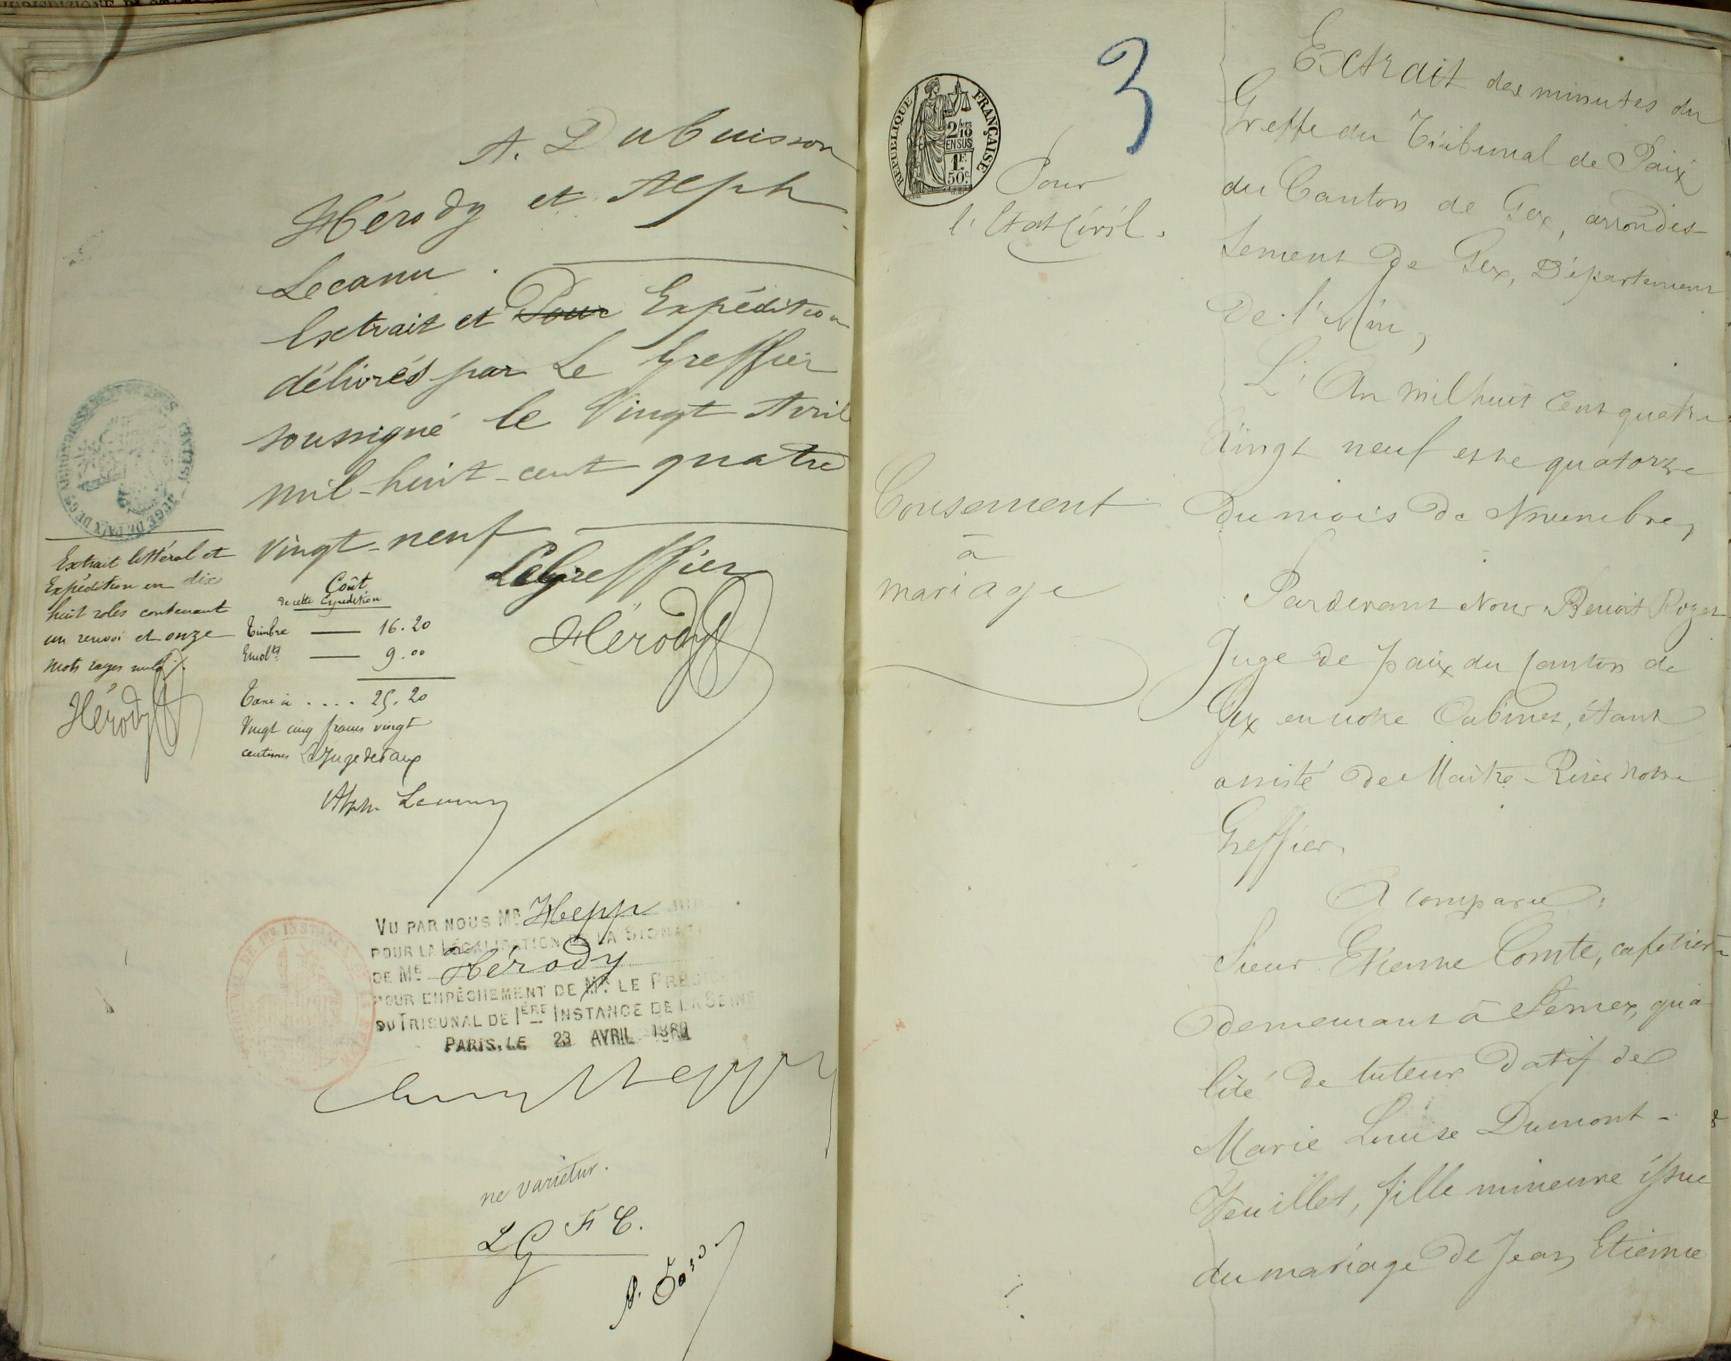 A. Dubuisson
Hérody et Alph.
Lecanu.
Extrait et Pour Expédition
délivrés par Le Greffier
soussigné le Vingt Avril
mil-huit-cent quatre
vingt-neuf
Le Greffier
Hérody
Extrait littéral et
Expédition en dix
huit roles contenant
un renvoi et onze
mots rayés nuls.
Hérody
Coût
de cette Expédition
Timbre — 16.20
Emolts — 9.00
Taxé à .... 25.20
Vingt cinq francs vingt
centimes Le Juge de Paix
Alph. Lecanu
VU PAR NOUS MR Hepp
POUR LA LÉGALISATION DE LA SIGNAT
DE ME Hérody
POUR EMPÊCHEMENT DE MR LE PRES
DU TRIBUNAL DE 1ÈRE INSTANCE DE LA SEINE
PARIS, LE 23 AVRIL 1889
Hepp
ne varietur.
L G F C.
3
RÉPUBLIQUE FRANÇAISE
2/10
EN SUS
1F
50c
Pour
l'Etat Civil.
Consement
à
mariage
Extrait des minutes du
Greffe du Tribunal de Paix
du Canton de Gex, arrondis-
sement de Gex, Département
De l'Ain,
L'An mil huit cent quatre
Vingt neuf et le quatorze
du mois de Novembre,
Pardevant Nous Benoit Rozet
Juge de paix du canton de
Gex en notre Cabinet, étant
assisté de Maître notre
Greffier.
A comparu:
Sieur Etienne Comte, cafetier
demeurant à Fernex, qua
lité de tuteur datif de
Marie Louise Dumont-
Veuillet, fille mineure issue
du mariage de Jean Etienne